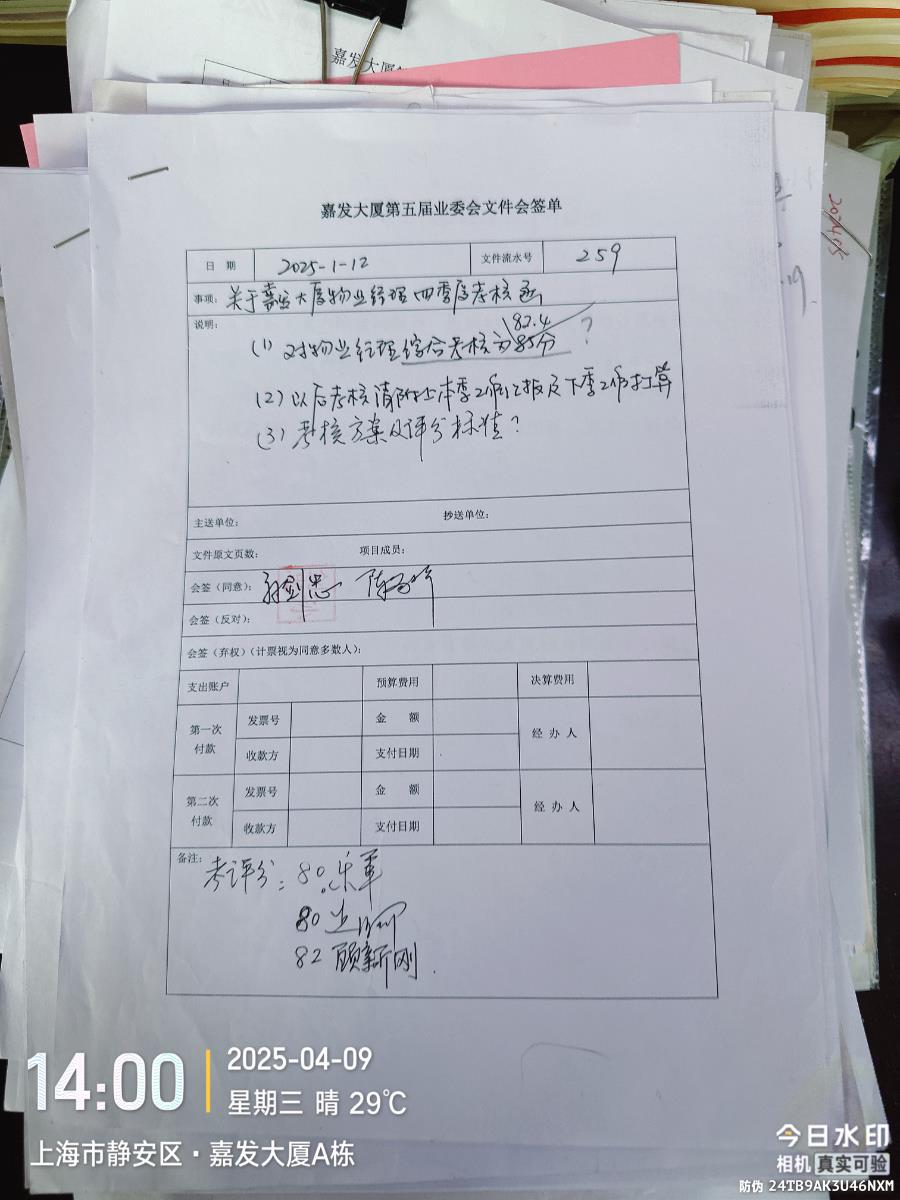 嘉发大厦
嘉发大厦第五届业委会文件会签单
日 期 2025-1-12 文件流水号 259
事项: 关于嘉发大厦物业经理四季度考核函
说明:
82.4
(1) 对物业经理综合考核为85分 ?
(2) 以后考核请附上本季工作汇报及下季工作打算
(3) 考核方案及评分标准?
主送单位: 抄送单位:
文件原文页数: 项目成员:
会签(同意):
会签(反对):
会签(弃权)(计票视为同意多数人):
支出账户 预算费用 决算费用
第一次付款 发票号 金 额 经 办 人
收款方 支付日期
第二次付款 发票号 金 额 经 办 人
收款方 支付日期
备注: 考评分: 80 乐军
80
82 顾新刚
14:00
2025-04-09
星期三 晴 29℃
上海市静安区·嘉发大厦A栋
今日水印
相机 真实可验
防伪 24TB9AK3U46NXM